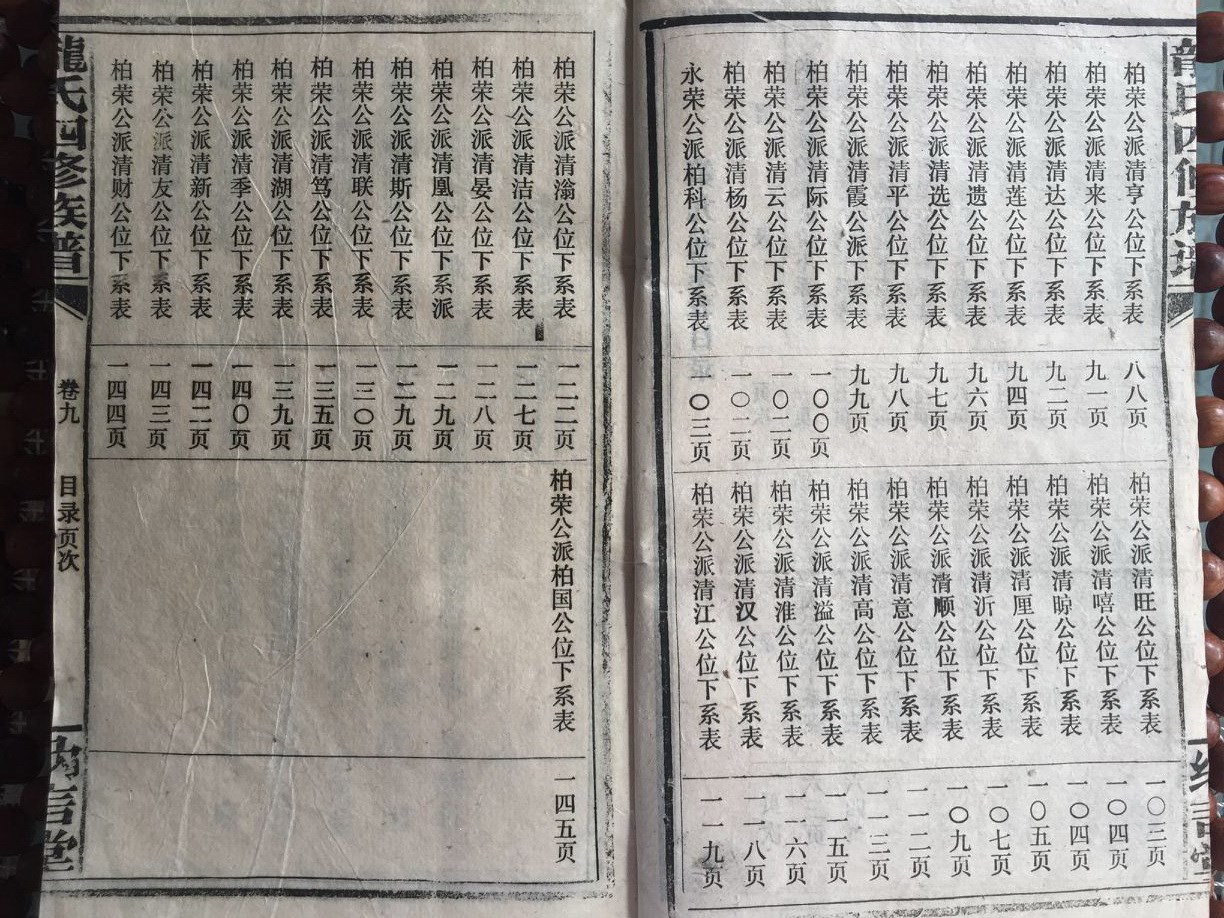 龍氏四修族谱
柏荣公派清亨公位下系表 八八页
柏荣公派清来公位下系表 九一页
柏荣公派清达公位下系表 九二页
柏荣公派清莲公位下系表 九四页
柏荣公派清遗公位下系表 九六页
柏荣公派清选公位下系表 九七页
柏荣公派清平公位下系表 九八页
柏荣公派清霞公派下系表 九九页
柏荣公派清际公位下系表 一〇〇页
柏荣公派清云公位下系表 一〇二页
柏荣公派清杨公位下系表 一〇二页
永荣公派柏科公位下系表 一〇三页
柏荣公派清旺公位下系表 一〇三页
柏荣公派清嘻公位下系表 一〇四页
柏荣公派清晾公位下系表 一〇四页
柏荣公派清厘公位下系表 一〇五页
柏荣公派清沂公位下系表 一〇七页
柏荣公派清顺公位下系表 一〇九页
柏荣公派清意公位下系表 一一二页
柏荣公派清高公位下系表 一一三页
柏荣公派清溢公位下系表 一一五页
柏荣公派清淮公位下系表 一一六页
柏荣公派清汉公位下系表 一一八页
柏荣公派清江公位下系表 一一九页
柏荣公派清滃公位下系表 一二二页
柏荣公派清洁公位下系表 一二七页
柏荣公派清晏公位下系表 一二八页
柏荣公派清凰公位下系派 一二九页
柏荣公派清斯公位下系表 一二九页
柏荣公派清联公位下系表 一三〇页
柏荣公派清笃公位下系表 一三五页
柏荣公派清湖公位下系表 一三九页
柏荣公派清季公位下系表 一四〇页
柏荣公派清新公位下系表 一四二页
柏荣公派清友公位下系表 一四三页
柏荣公派清财公位下系表 一四四页
柏荣公派柏国公位下系表 一四五页
龍氏四修族譜
卷九
目录页次
言堂